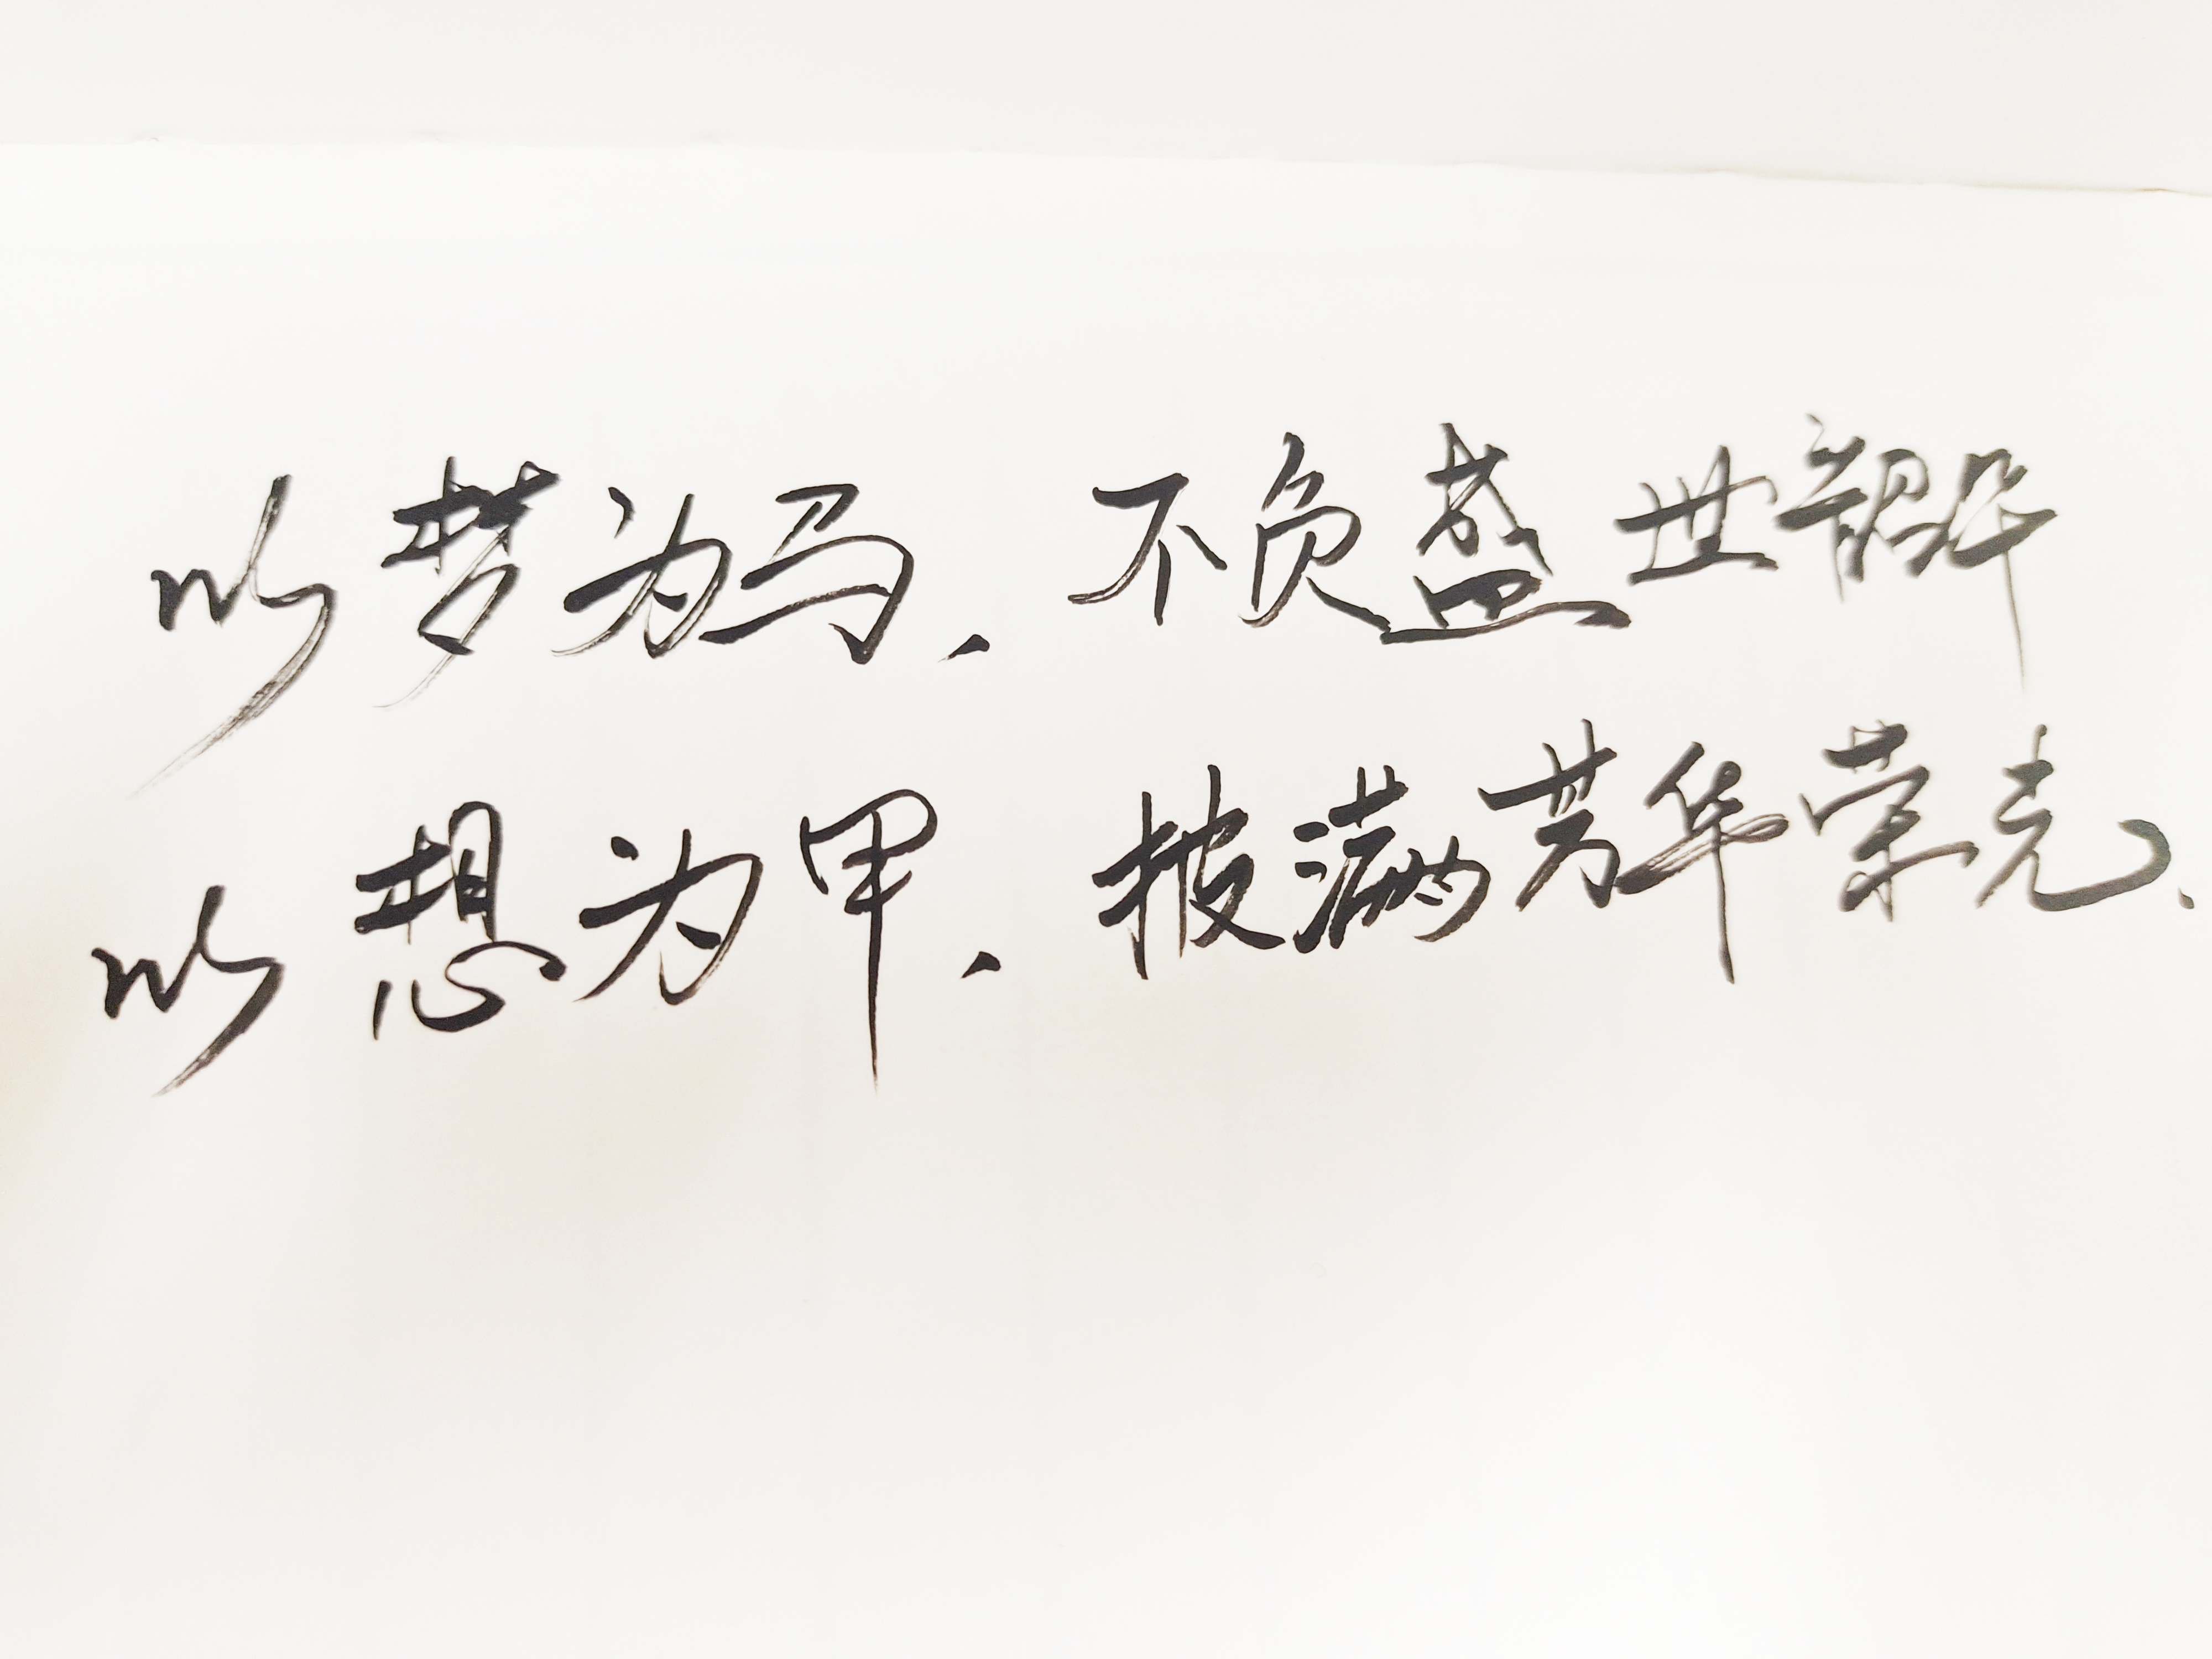 以梦为马、不负盛世韶华
以想为甲、披满芳华荣光、